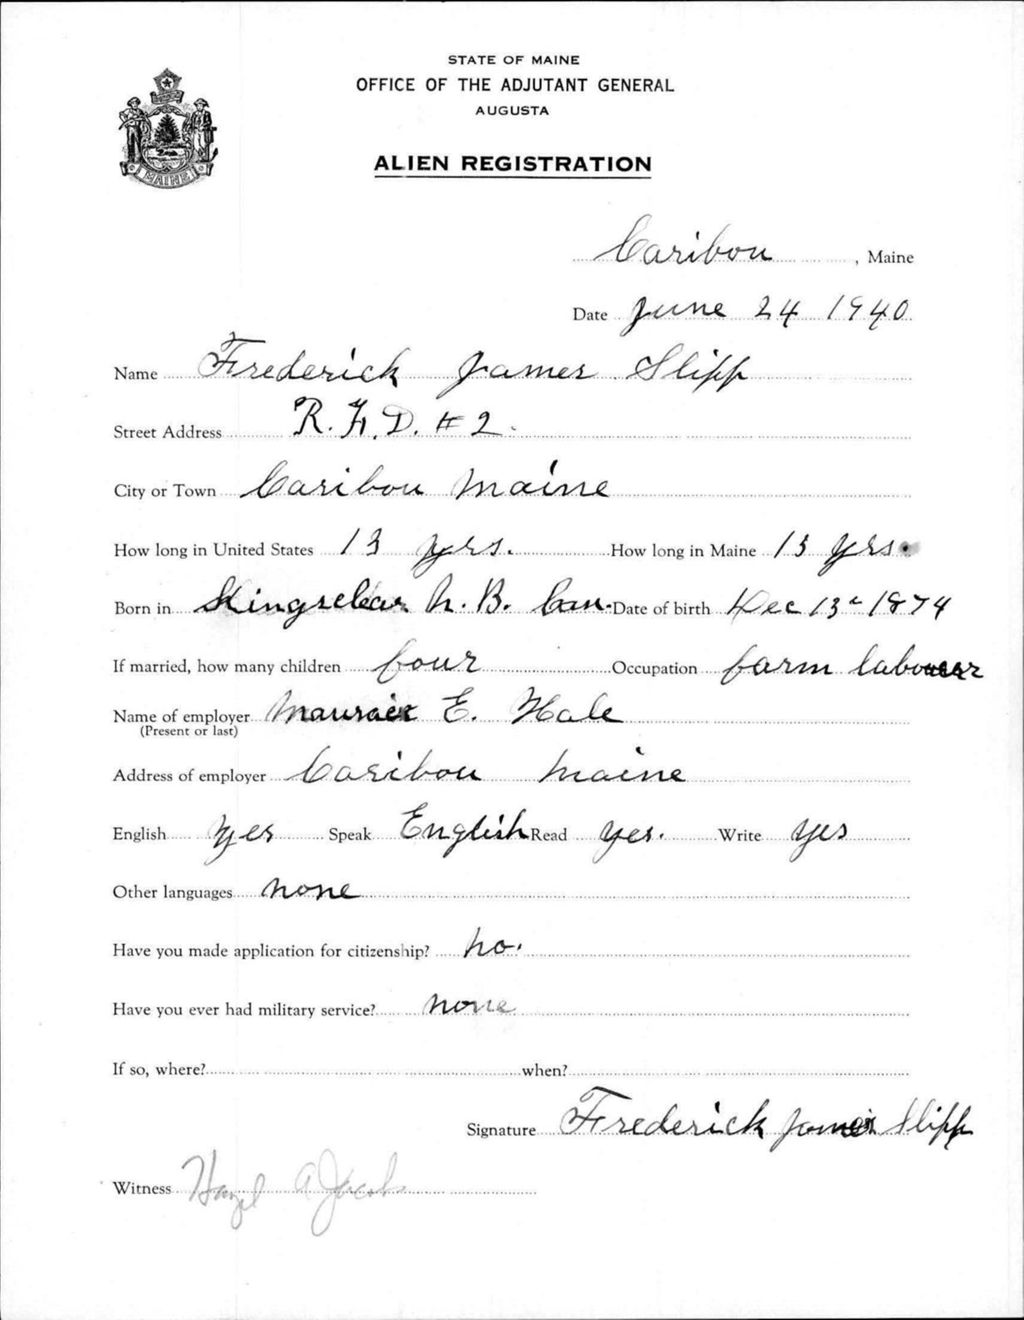 STATE OF MAINE
OFFICE OF THE ADJUTANT GENERAL
AUGUSTA
ALIEN REGISTRATION
MAINE
Caribou, Maine
Date June 24 1940
Name Frederick James Slipp
Street Address R.F.D. #2.
City or Town Caribou Maine
How long in United States 13 yrs. How long in Maine 13 yrs.
Born in Kingsclear N.B. Can. Date of birth Dec 13 1874
If married, how many children four Occupation farm labourer
Name of employer E. Hale
(Present or last)
Address of employer Caribou Maine
English yes Speak English Read yes. Write yes
Other languages none
Have you made application for citizenship? no.
Have you ever had military service? none
If so, where? when?
Signature Frederick James Slipp
Witness Hazel A Jacobs